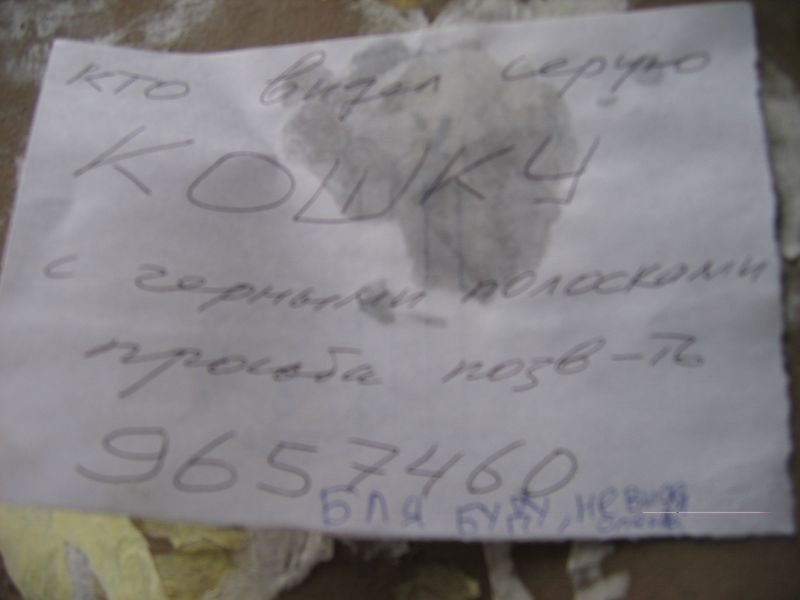 кто видел серую
КОШКУ
с черными полосками
просьба позв-ть
9657460
БЛЯ БУДУ, НЕ ВИДЕ